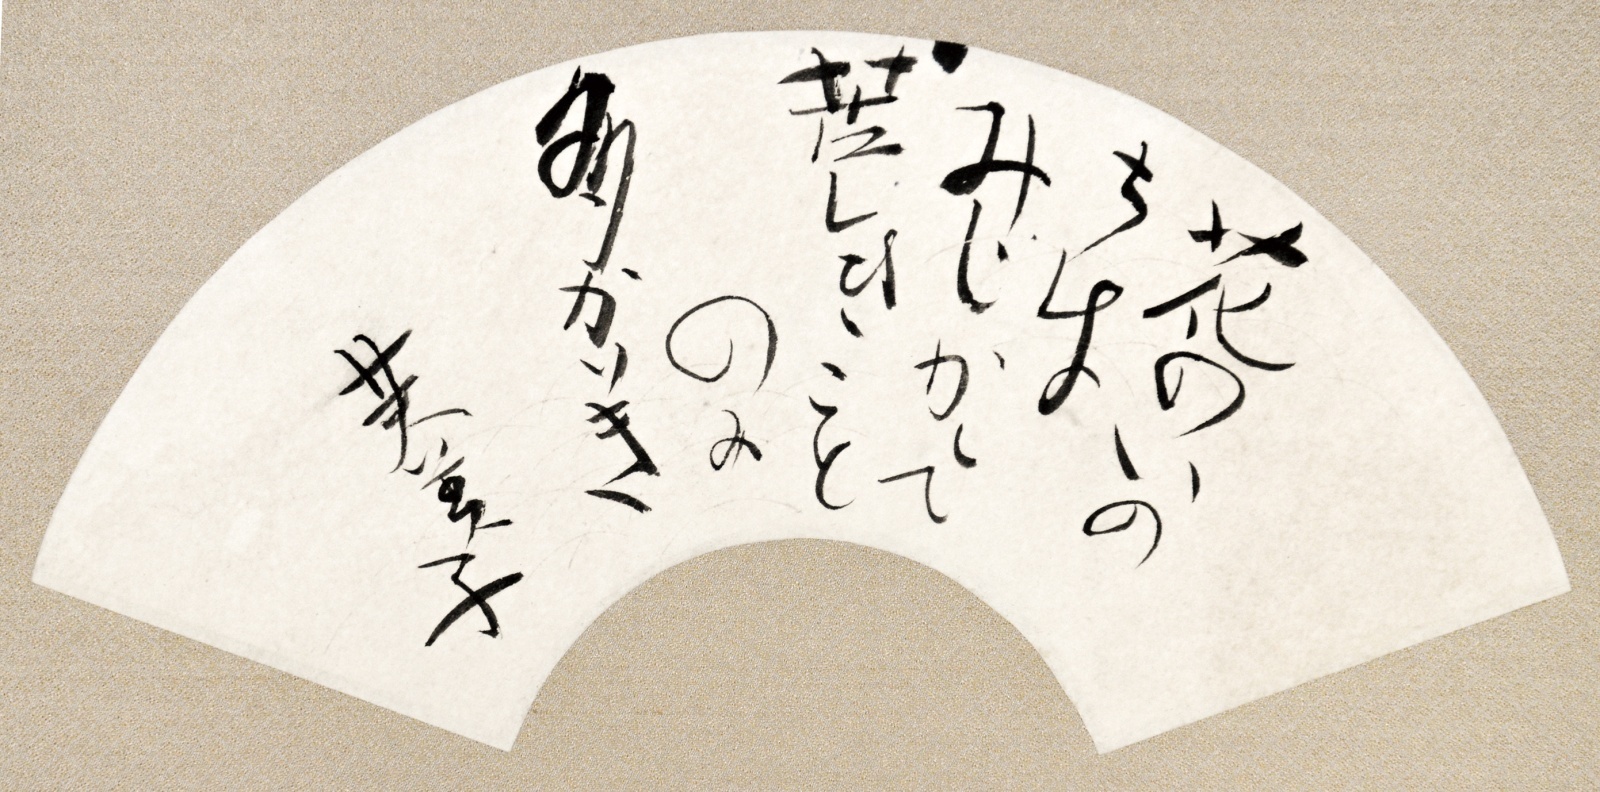 花のいの
ちは
みじかくて
苦しきこと
のみ
多かりき
芙美子